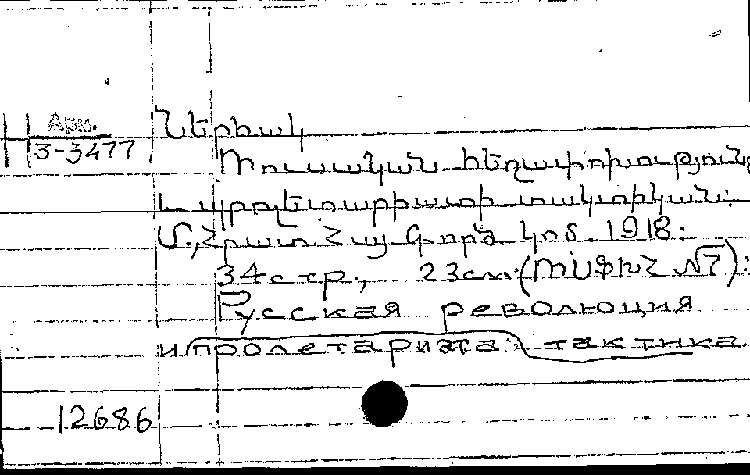 Арм.
3-3477
Ներիակ
Ռուսական հեղափոխությունը
և պրոլետարիատի տակտիկան:
Մ., Հրատ. Հայ Գործ Կոմ. 1918:
34 стр., 23 см. (ՌՍՖԽՀ №7):
Русская революция
и пролетариата тактика
12686